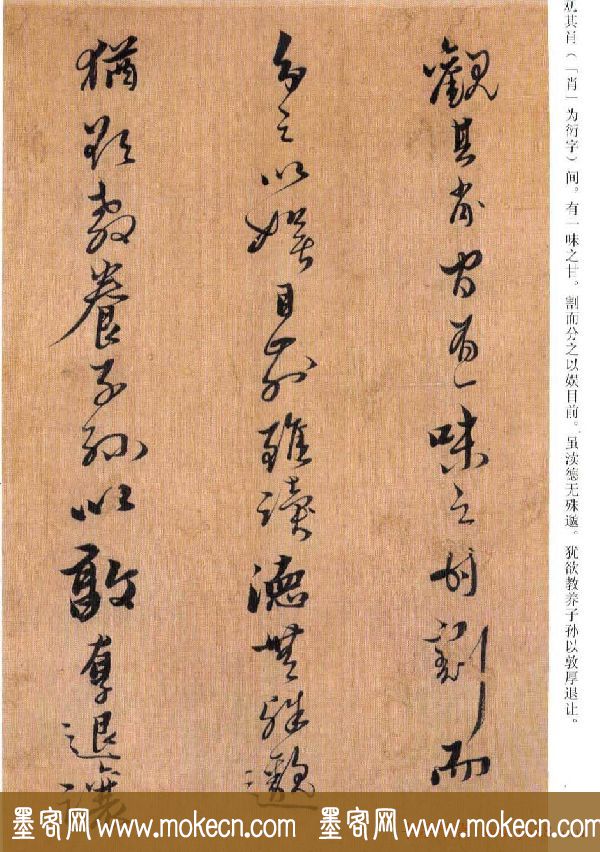 观其肖（「肖」为衍字）间。有一味之甘。割而分之以娱目前。虽渎德无殊邈。犹欲教养子孙以敦厚退让。
觀其肖間有一味之甘割而
分之以娱目前雖讀德無殊邈
猶欲教養子孫以敦厚退讓
墨客网 www.mokecn.com 墨客网 www.mokecn.com